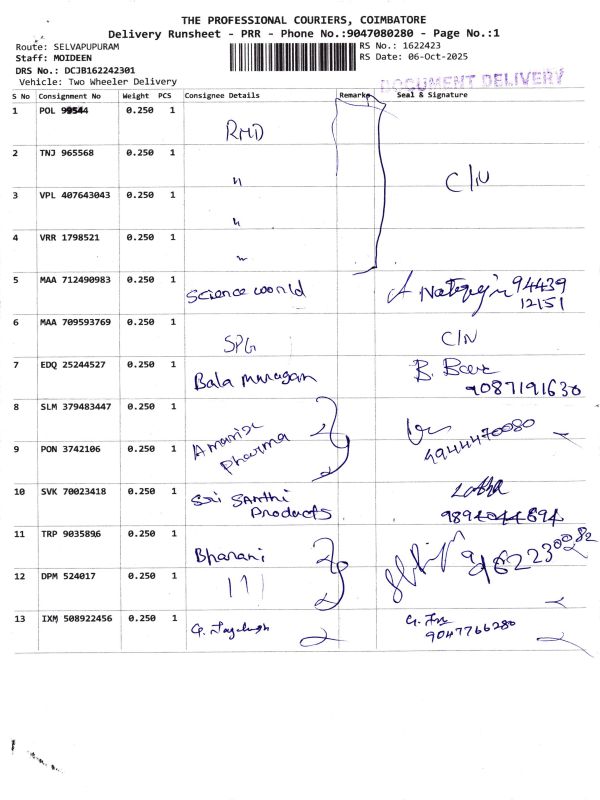 THE PROFESSIONAL COURIERS, COIMBATORE
Delivery Runsheet - PRR - Phone No.:9047080280 - Page No.:1
Route: SELVAPUPURAM
RS No.: 1622423
Staff: MOIDEEN
RS Date: 06-Oct-2025
DRS No.: DCJB162242301
Vehicle: Two Wheeler Delivery
DOCUMENT DELIVERY
S No Consignment No Weight PCS Consignee Details Remarks Seal & Signature
1 POL 0.250 1 RMD
2 TNJ 965568 0.250 1 "
C/N
3 VPL 407643043 0.250 1 "
4 VRR 1798521 0.250 1 "
5 MAA 712490983 0.250 1 Science world 94439
12151
6 MAA 709593769 0.250 1 SPG C/N
7 EDQ 25244527 0.250 1 Bala murugan B.
9087191630
8 SLM 379483447 0.250 1
Pharma
9 PON 3742106 0.250 1 2
10 SVK 70023418 0.250 1 Sri Santhi
Products
11 TRP 9035896 0.250 1 Bharani
12 DPM 524017 0.250 1
13 IXM 508922456 0.250 1 G. G.
9047766280